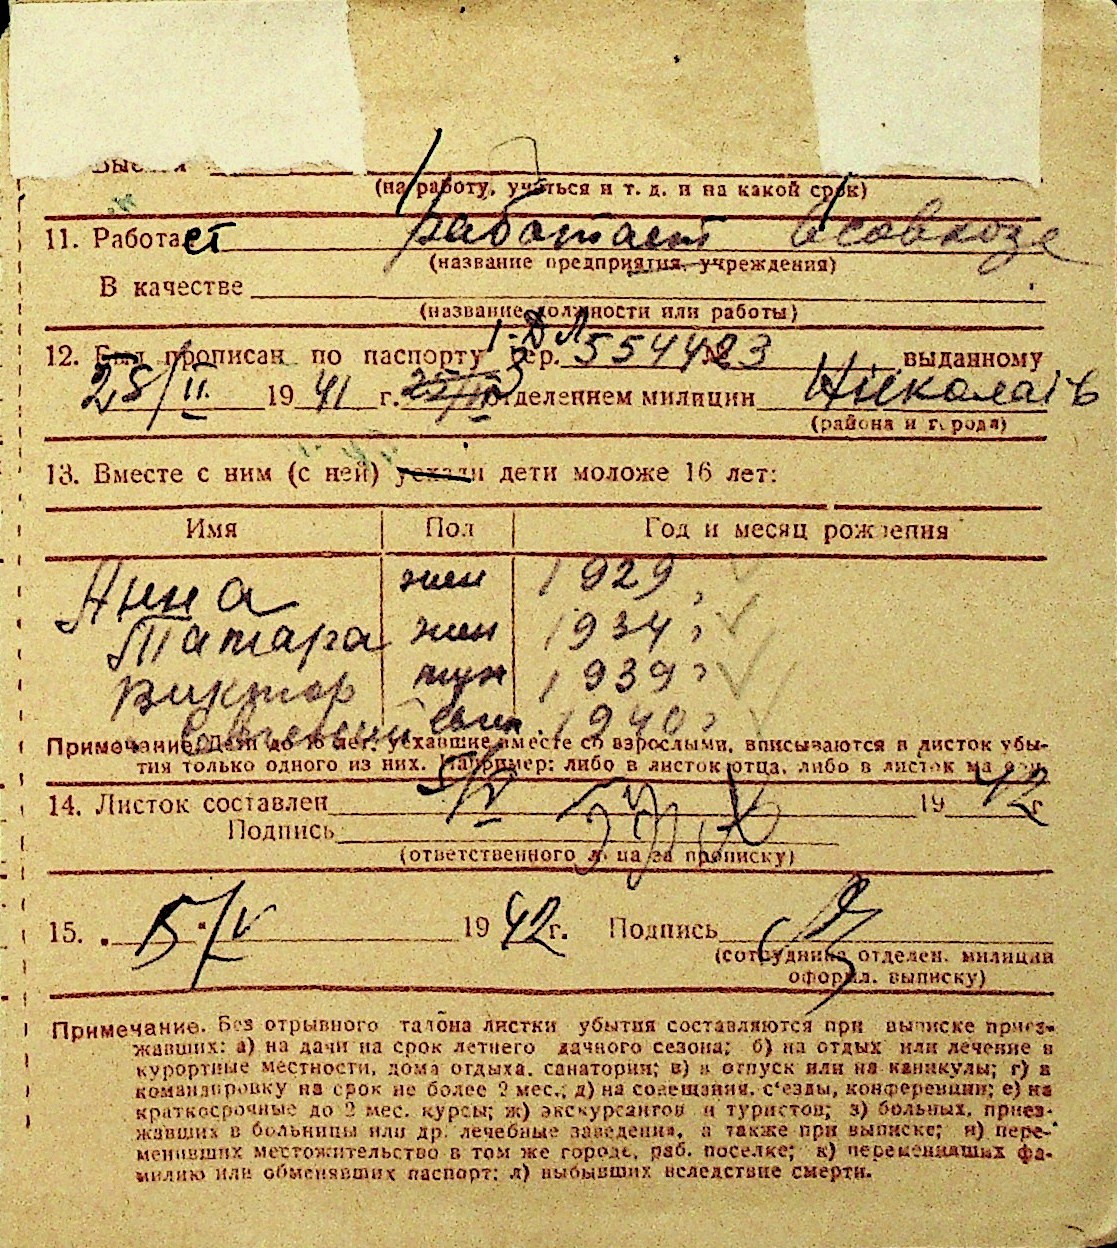 (на работу, учиться и т. д. и на какой срок)
11. Работает работает в совхозе
(название предприятия, учреждения)
В качестве
(название должности или работы)
12. Был прописан по паспорту I-ДЛ сер. 554423 № выданному
28/II. 1941 г. отделением милиции Ніколаів
(района и города)
13. Вместе с ним (с ней) уехали дети моложе 16 лет:
Имя Пол Год и месяц рождения
Анна жен 1929
Тамара жен 1934
Виктор муж 1939
Евгений 1940
Примечание. Дети до 16 лет, уехавшие вместе со взрослыми, вписываются в листок убы-
тия только одного из них. Например: либо в листок отца, либо в листок матери.
14. Листок составлен 5/V 1942 г
Подпись
(ответственного лица за прописку)
15. 15/V 1942 г. Подпись
(сотрудника отделен. милиции
оформл. выписку)
Примечание. Без отрывного талона листки убытия составляются при выписке приез-
жавших: а) на дачи на срок летнего дачного сезона; б) на отдых или лечение в
курортные местности, дома отдыха, санатории; в) в отпуск или на каникулы; г) в
командировку на срок не более 2 мес.; д) на совещания, с'езды, конференции; е) на
краткосрочные до 2 мес. курсы; ж) экскурсантов и туристов; з) больных, приез-
жавших в больницы или др. лечебные заведения, а также при выписке; и) пере-
менивших местожительство в том же городе, раб. поселке; к) переменивших фа-
милию или обменявших паспорт; л) выбывших вследствие смерти.